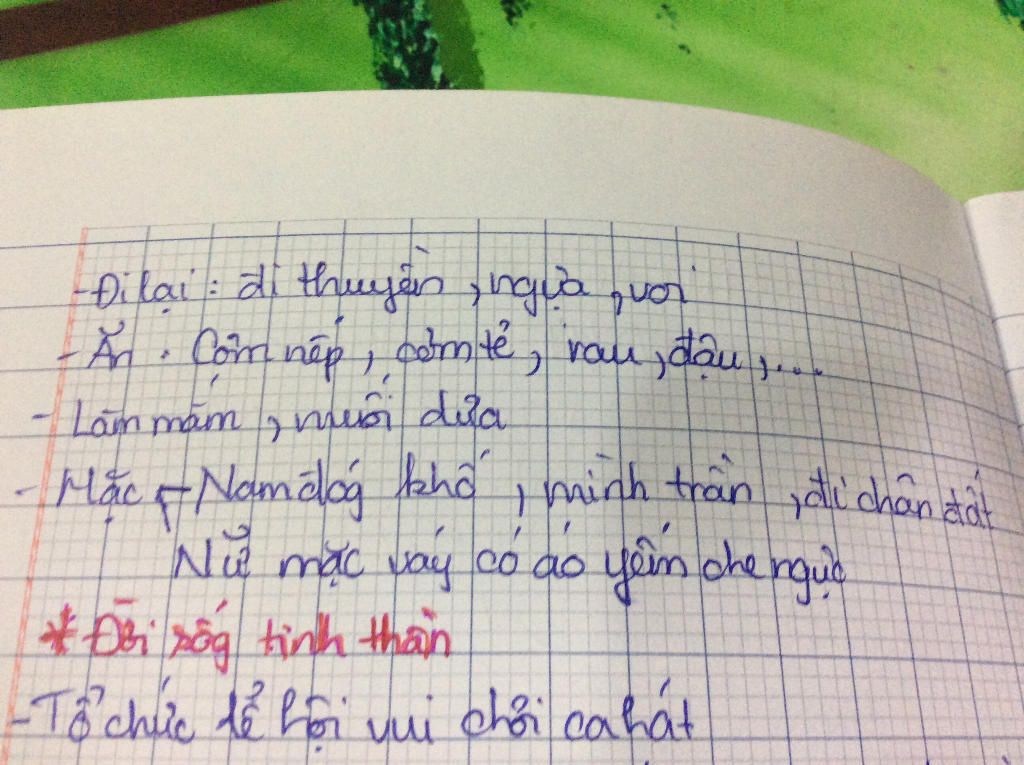 - Đi lại : đi thuyền , ngựa , voi
- Ăn : Cơm nếp , cơm tẻ , rau , đậu , ...
- Làm mắm , muối dưa
- Mặc - Nam đóg khố , mình trần , đi chân đất
Nữ mặc váy có áo yếm che ngực
* Đời sốg tinh thần
- Tổ chức lễ hội vui chơi ca hát